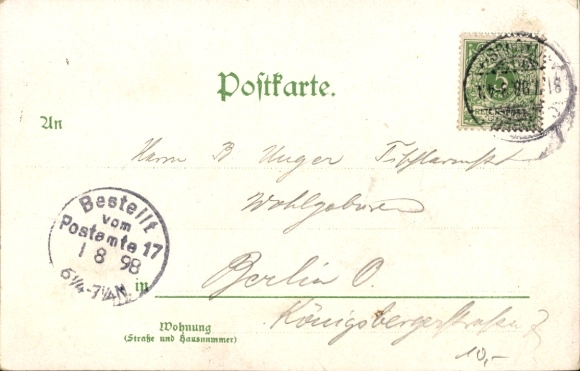 Postkarte.
5
An
Herrn B Unger
Wohlgeboren
Bestellt
vom
Postamte 17
1 8 98
6¼-7¼N.
in Berlin O.
Königsbergerstraße 7
Wohnung
(Straße und Hausnummer)
10,-